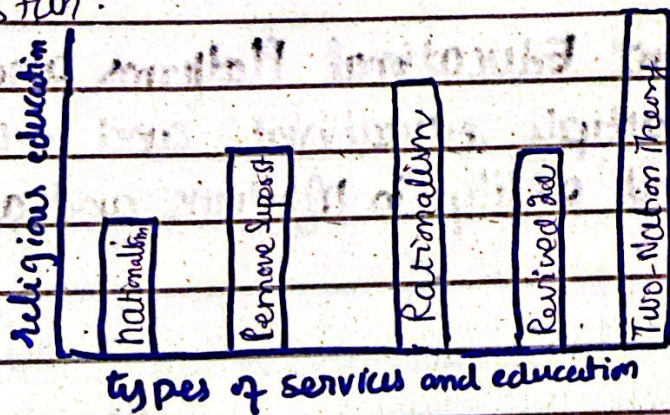 religious education
nationalism
Remove Superst
Rationalism
Revived
Two-Nation Theory
types of services and education